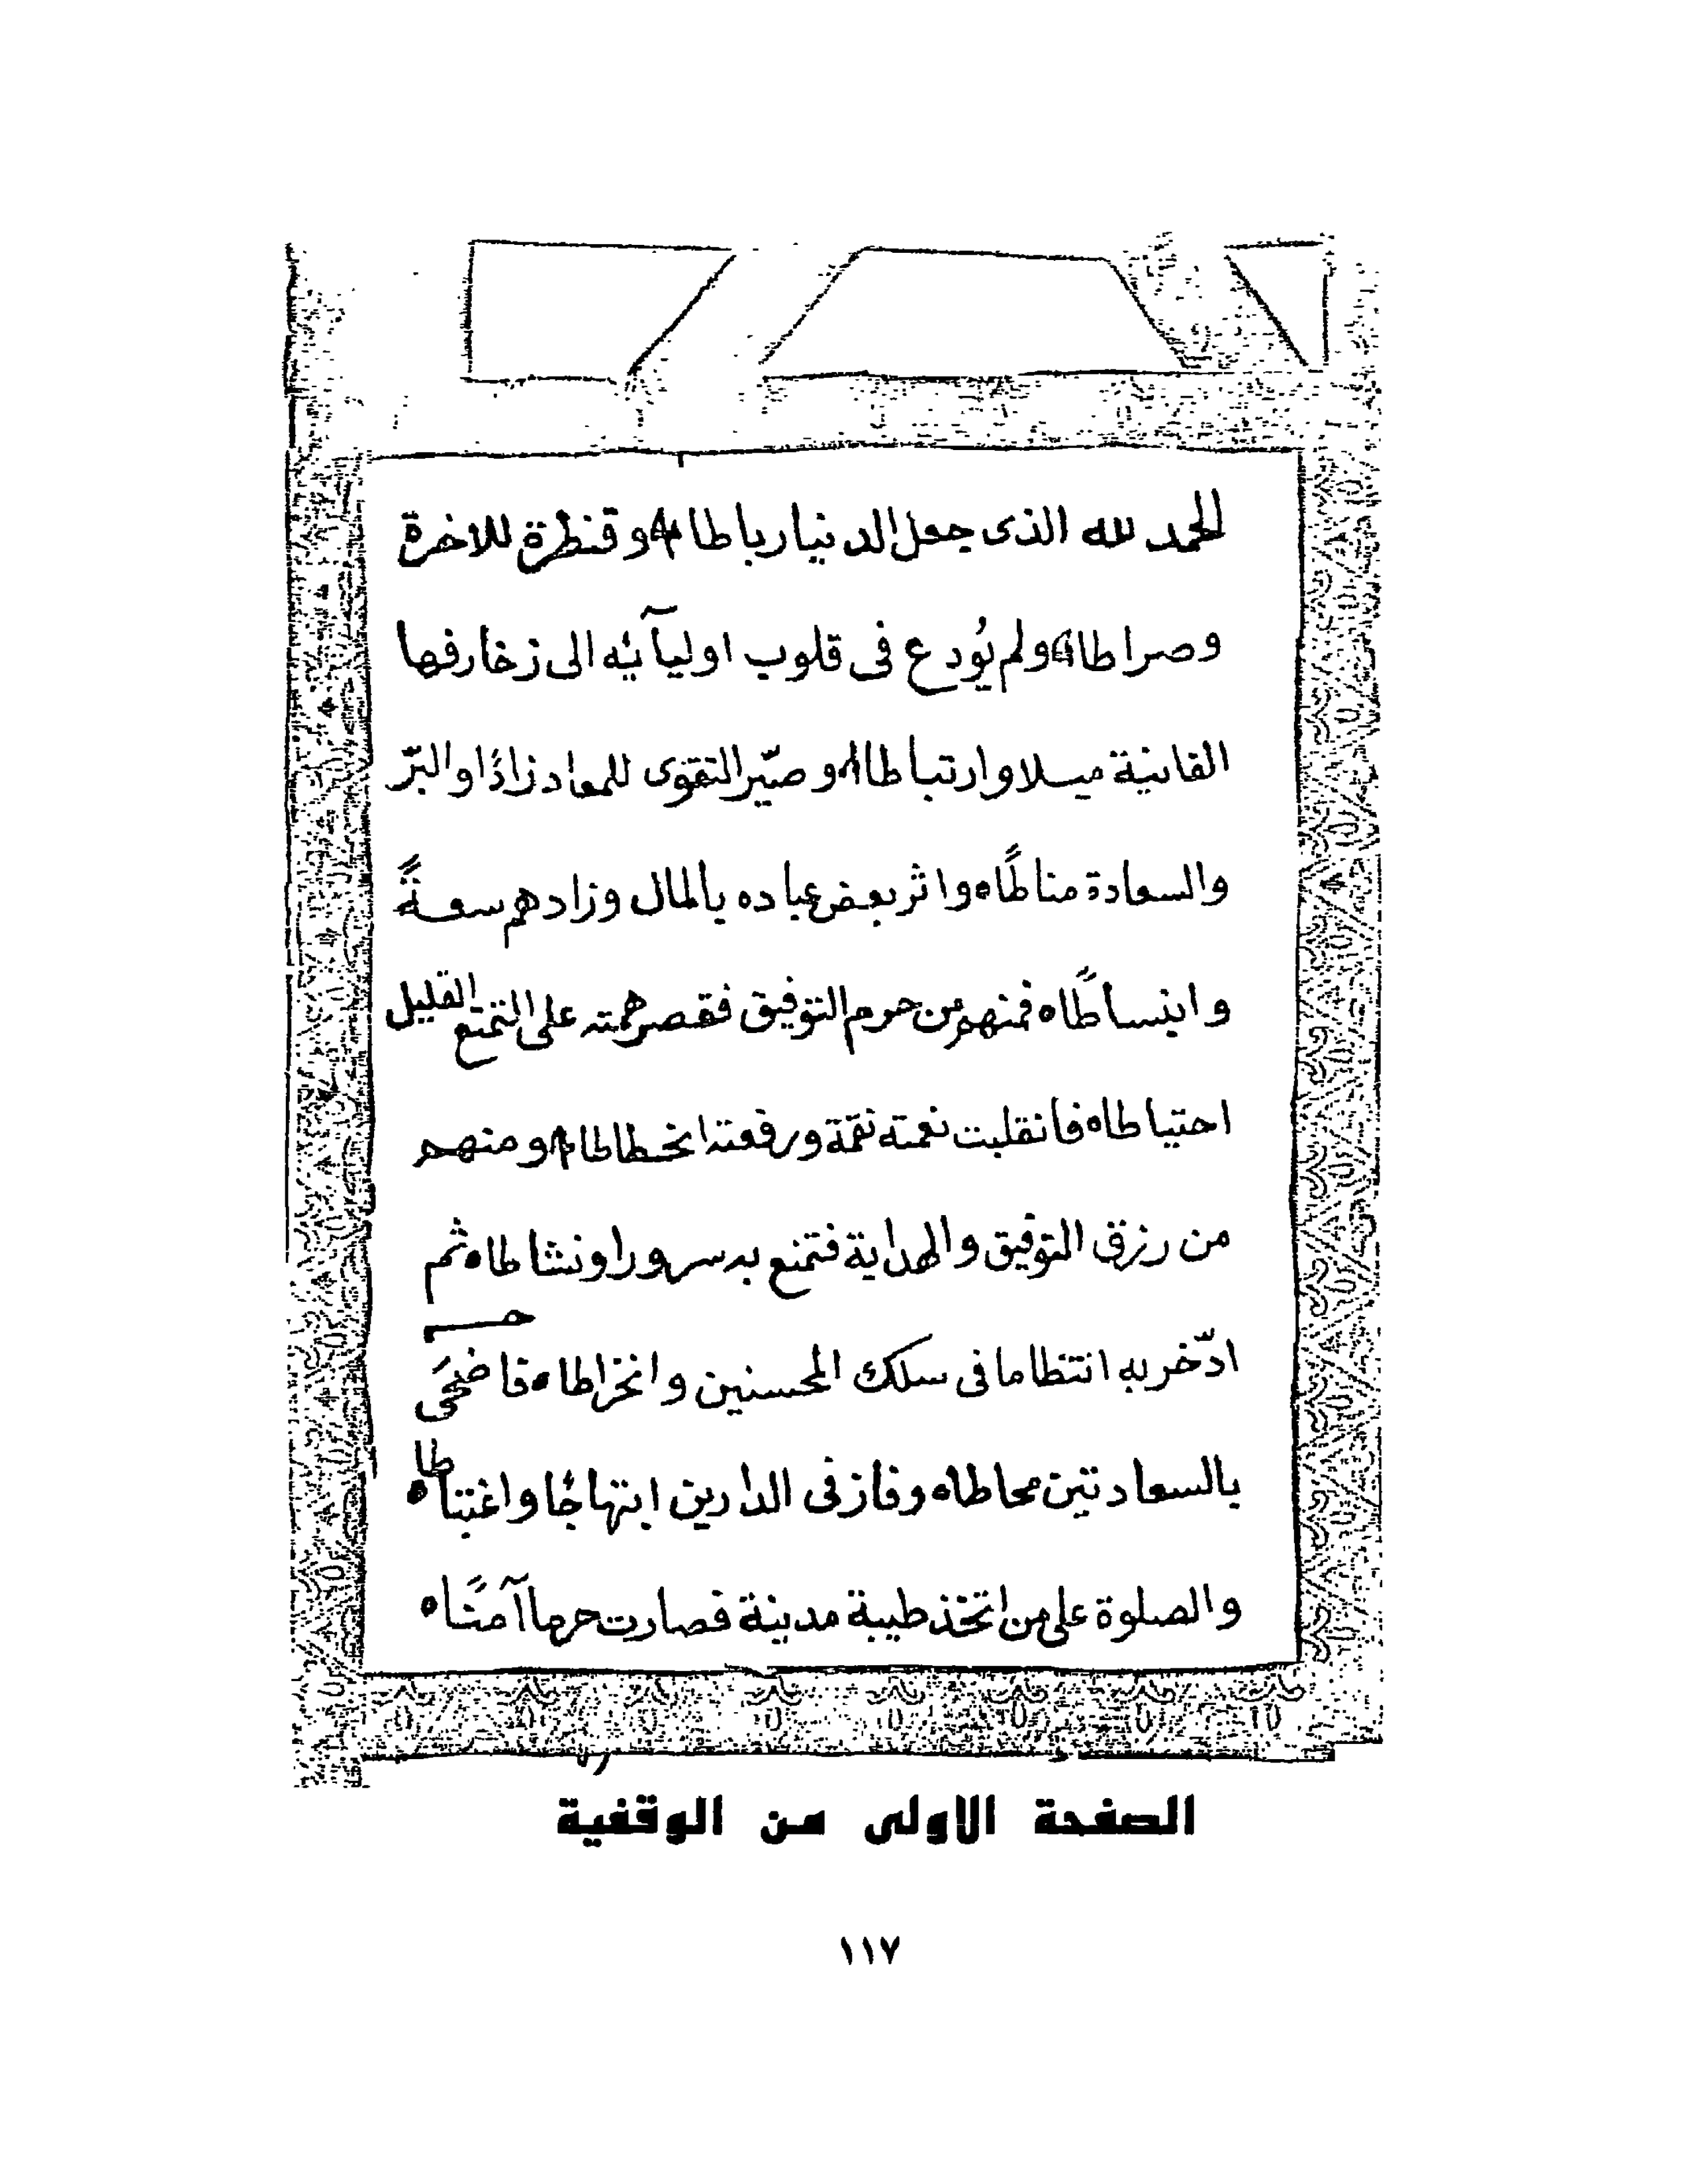 الحمد لله الذى جعل الدنيا رباطا وقنطرة للاخرة
وصراطا ولم يُودع فى قلوب اوليآئه الى زخارفها
الفانية ميلا وارتباطا وصيّر التقوى للمعاد زادًا والبرّ
والسعادة مناطًاه واثر بعض عباده بالمال وزادهم سعةً
وانبساطًاه فمنهم من حرم التوفيق فقصر همته على التمتع القليل
احتياطاه فانقلبت نعمته نقمة ورفعته انحطاطا ومنهم
من رزق التوفيق والهداية فتمتع به سرورا ونشاطاه ثم
ادّخر به انتظاما فى سلك المحسنين وانخراطاه فاضحَى
بالسعادتين محاطاه وفاز فى الدارين ابتهاجًا واغتباطاه
والصلوة على من اتخذ طيبة مدينة فصارت حرما آمنًاه
الصفحة الاولى من الوقفية
١١٧